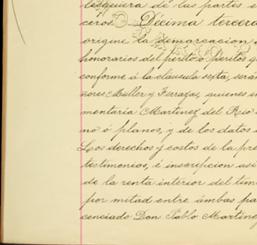 de las partes
Décima tercera
origine la demarcacion
honorarios del perito ó peritos q
conforme á la clausula sexta, serán
ores Muller y Farafas, quienes su
mentaría Martinez del Rio
nó ó planos, y de los datos
Los derechos y costos de la pre
testimonios, é inscripcion asi
de la renta interior del tim
por mitad entre ambas pa
cenciado Don Pablo Martinez